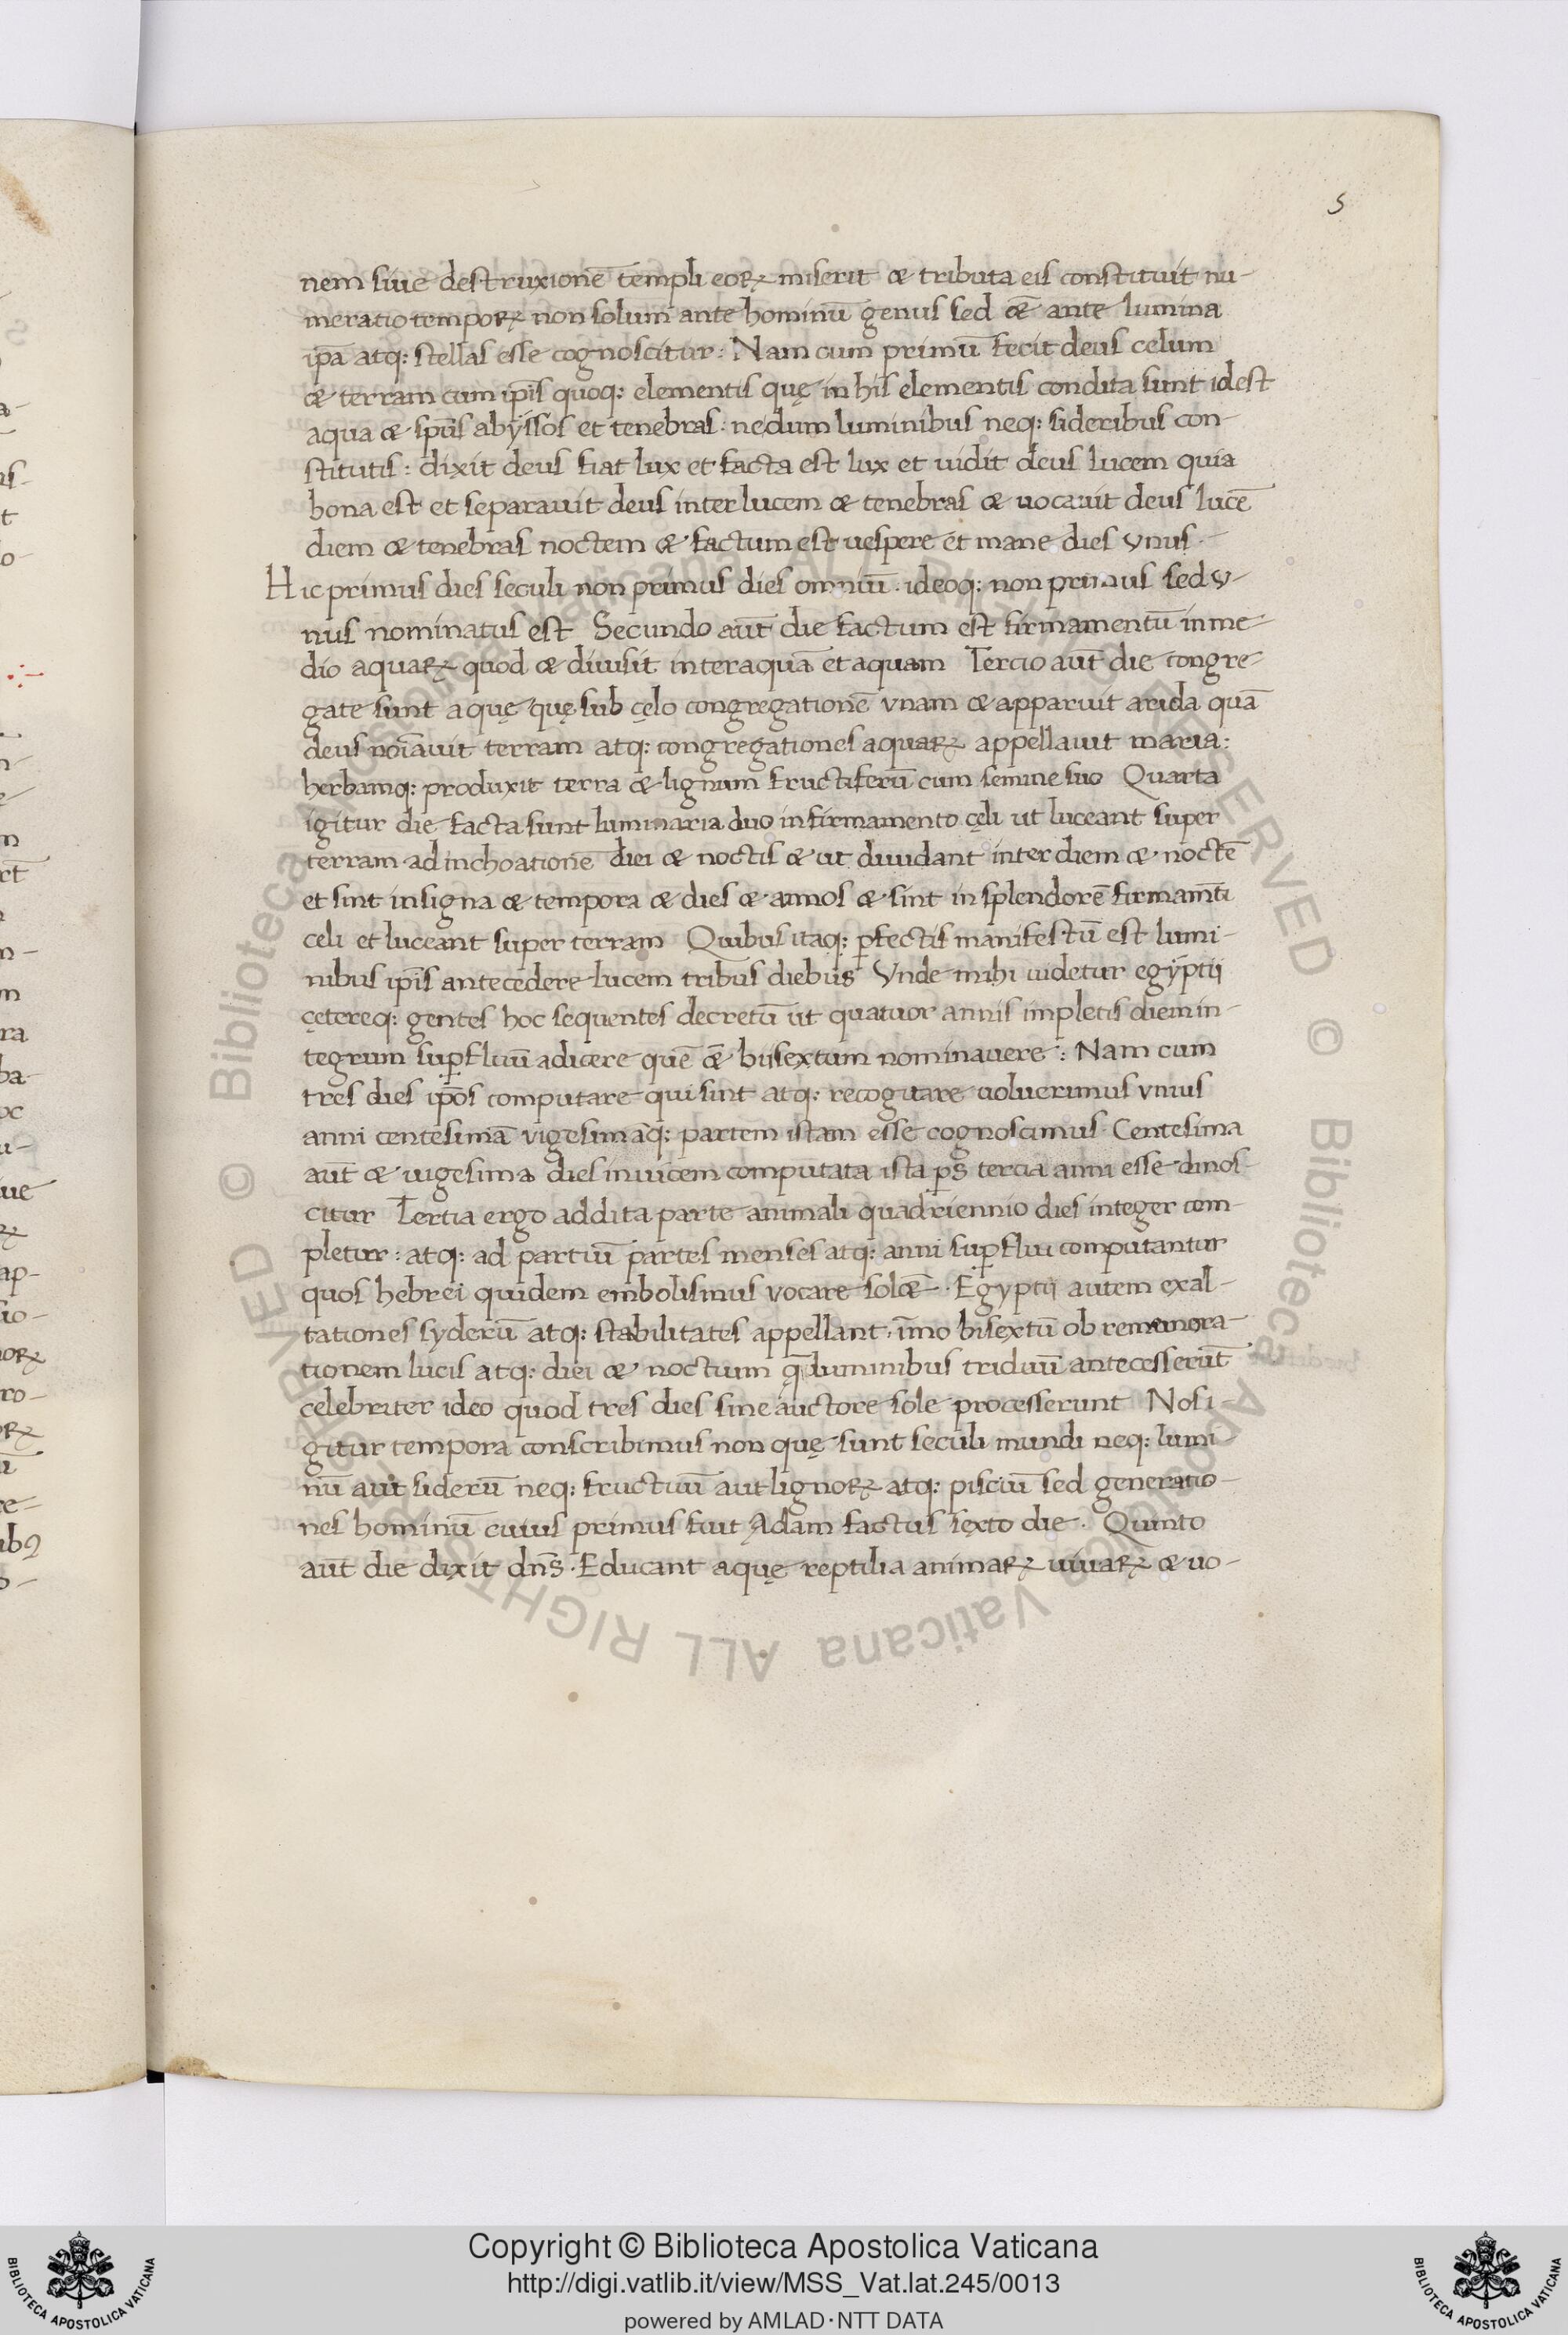 5
nem siue destruxionē templi eoꝝ miserit & tributa eis constituit nu-
meratio tempoꝝ non solum ante hominū genus sed &̄ ante lumina
ipā atq: stellas esse cognoscitur: Nam cum primū fecit deus celum
& terram cum ipīs quoq: elementis quę in his elementis condita sunt idest
aqua & spūs abyssos et tenebras: nedum luminibus neq: sideribus con-
stitutis: dixit deus fiat lux et facta est lux et uidit deus lucem quia
bona est et separauit deus inter lucem & tenebras & uocauit deus lucē
diem & tenebras noctem & factum est uespere et mane dies vnus.
Hic primus dies seculi non primus dies omniū. ideoq: non primus sed v-
nus nominatus est Secundo aūt die factum est firmamentū in me-
dio aquaꝝ quod & diuisit inter aquā et aquam Tercio aūt die congre-
gate sunt aquę quę sub cęlo congregationē vnam & apparuit arida quā
deus noīauit terram atq: congregationes aquaꝝ appellauit maria:
herbamq: produxit terra & lignum fructiferū cum semine suo Quarta
igitur die facta sunt luminaria duo in firmamento cęli ut luceant super
terram ad inchoationē diei & noctis & ut diuidant inter diem & noctē
et sint in signa & tempora & dies & annos & sint in splendorē firmam̄ti
celi et luceant super terram Quibus itaq: ꝑfectis manifestū est lumi-
nibus ipīs antecedere lucem tribus diebus Vnde mihi uidetur egyptii
cętereq: gentes hoc sequentes decretū ut quatuor annis impletis diem in-
tegrum suꝑfluū adicere quē &̄ bissextum nominauere: Nam cum
tres dies ipōs computare qui sint atq: recogitare uoluerimus vnius
anni centesimā vigesimāq: partem istam esse cognoscimus Centesima
aūt & uigesima dies inuicem computata ista ꝑs tercia anni esse dinos-
citur Tertia ergo addita parte animali quadriennio dies integer com-
pletur: atq: ad partiū partes menses atq: anni suꝑflui computantur
quos hebrei quidem embolismus vocare sol&̄. Egyptii autem exal-
tationes syderū atq: stabilitates appellant, īmo bisextū ob rememora-
tionem lucis atq: diei & noctium q̄ luminibus triduū antecesserūt
celebriter ideo quod tres dies sine auctore sole processerunt Nos i-
gitur tempora conscribimus non quę sunt seculi mundi neq: lumi-
nū aut siderū neq: fructuū aut lignoꝝ atq: pisciū sed generatio-
nes hominū cuius primus fuit Adam factus sexto die. Quinto
aūt die dixit dn̄s. Educant aquę reptilia animaꝝ uiuaꝝ & uo-
Copyright © Biblioteca Apostolica Vaticana
http://digi.vatlib.it/view/MSS_Vat.lat.245/0013
powered by AMLAD·NTT DATA